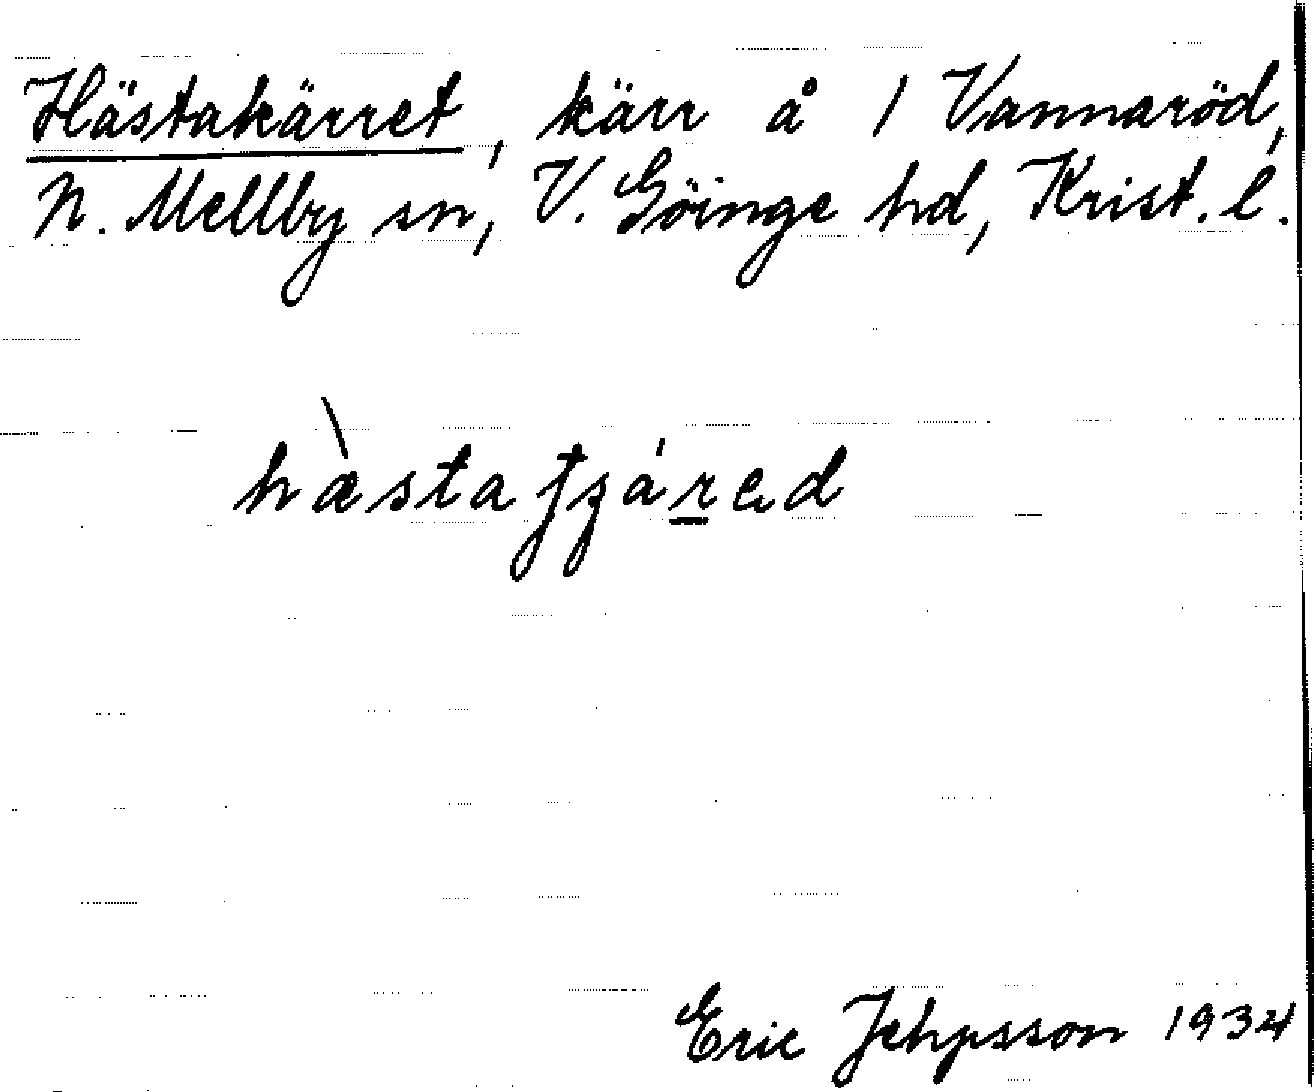 Hästakärret, kärr å 1 Vannaröd,
N. Mellby sn, V. Göinge hd, Krist. l.
Eric Jehpsson 1934